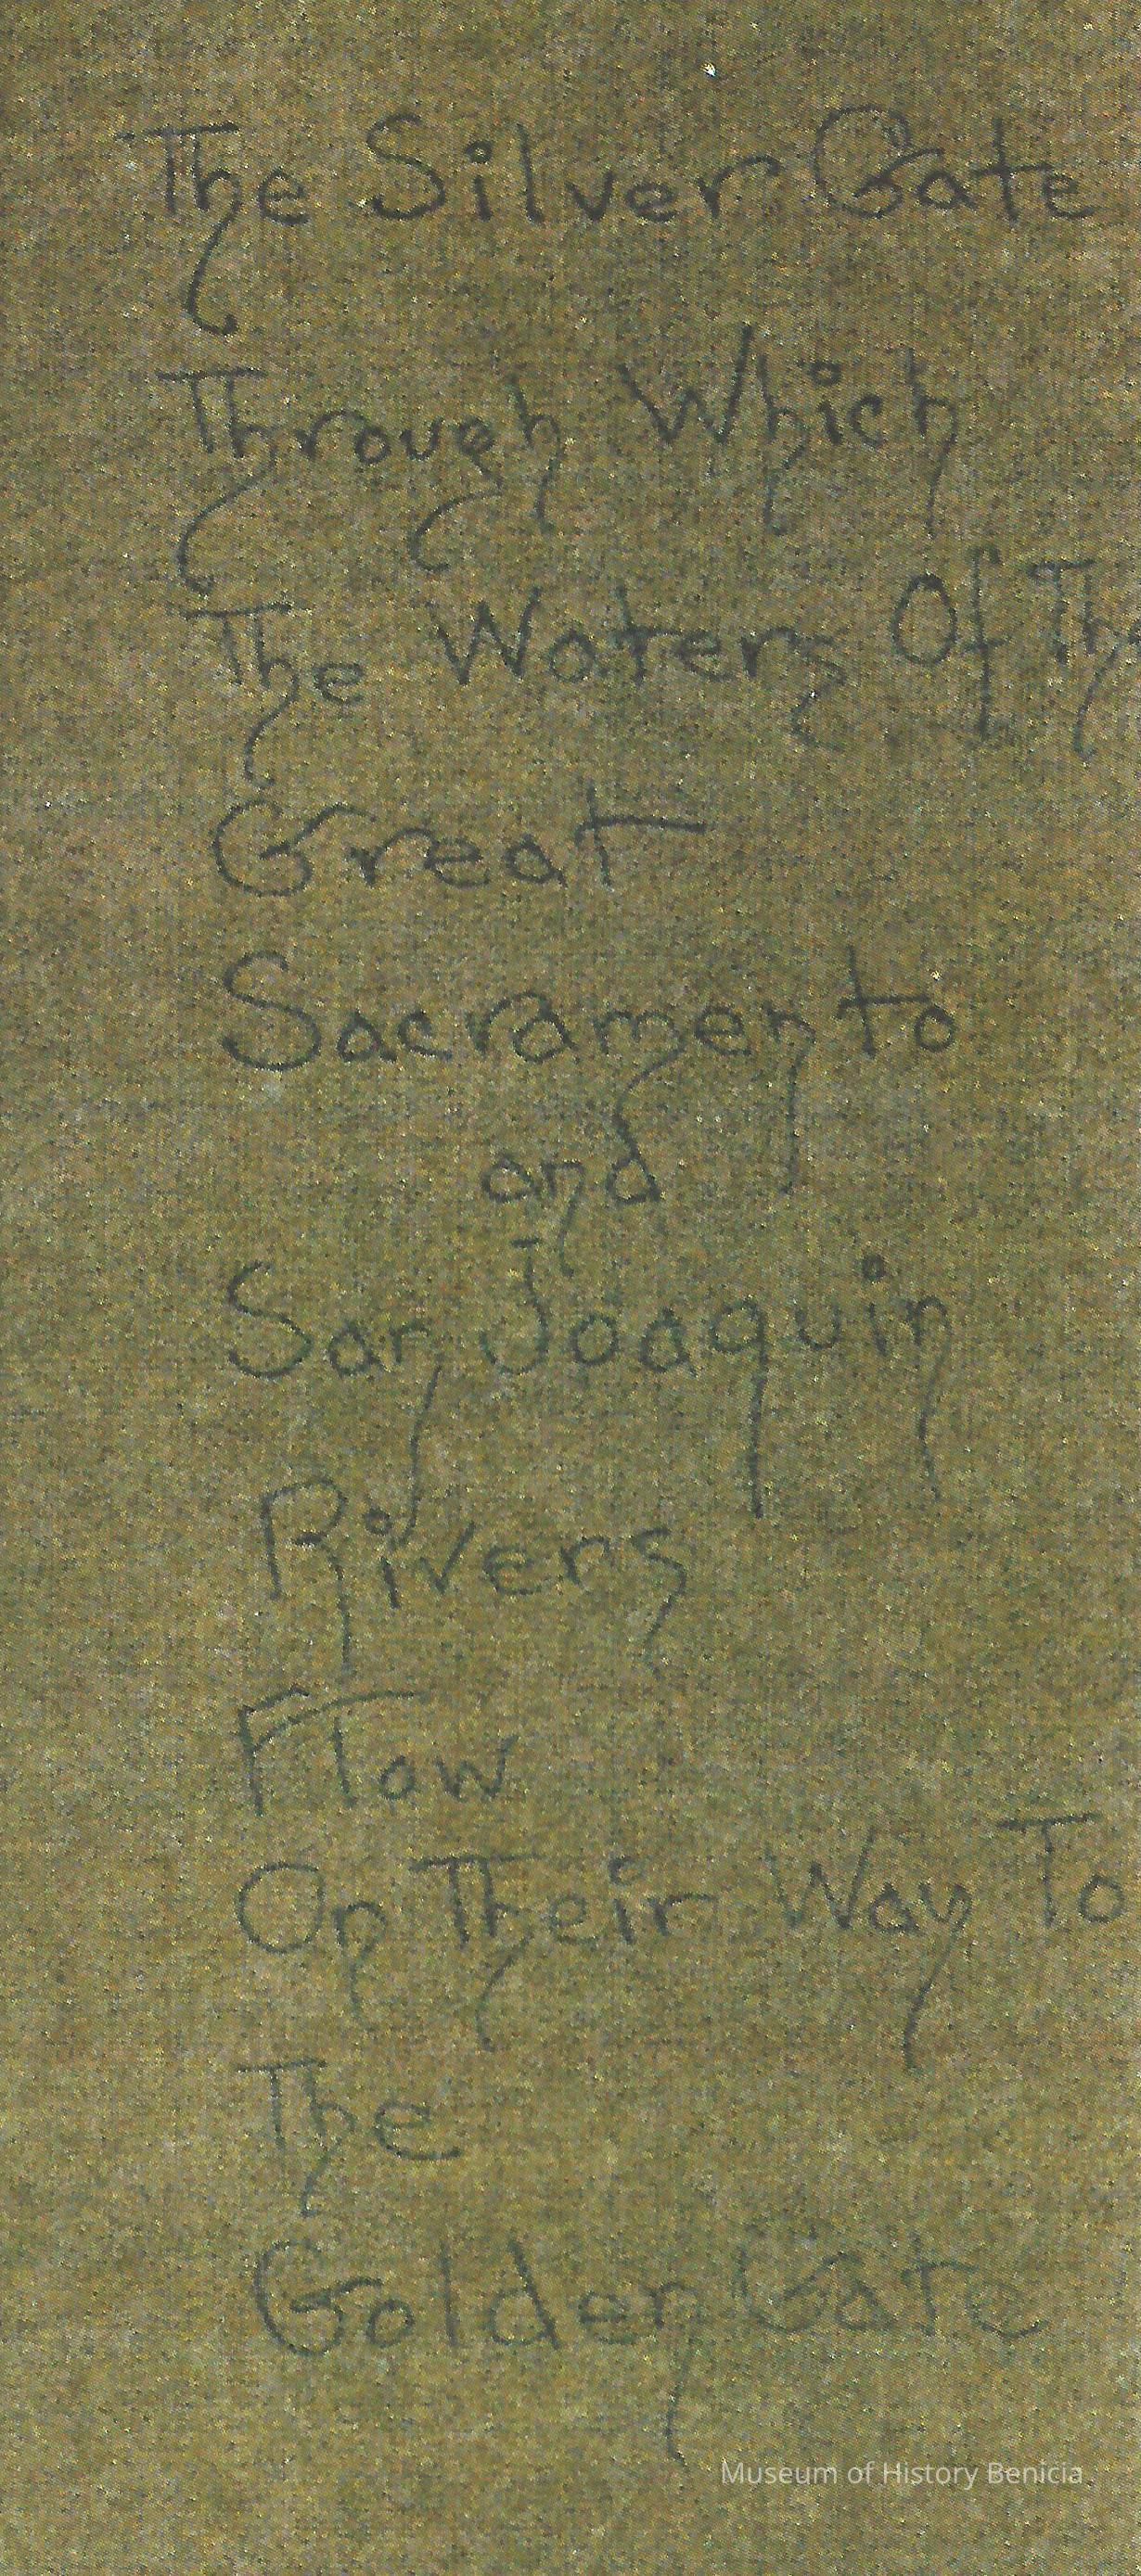 The Silver Gate
Through Which
The Waters Of The
Great
Sacramento
and
San Joaquin
Rivers
Flow
On Their Way To
The
Golden Gate
Museum of History Benicia